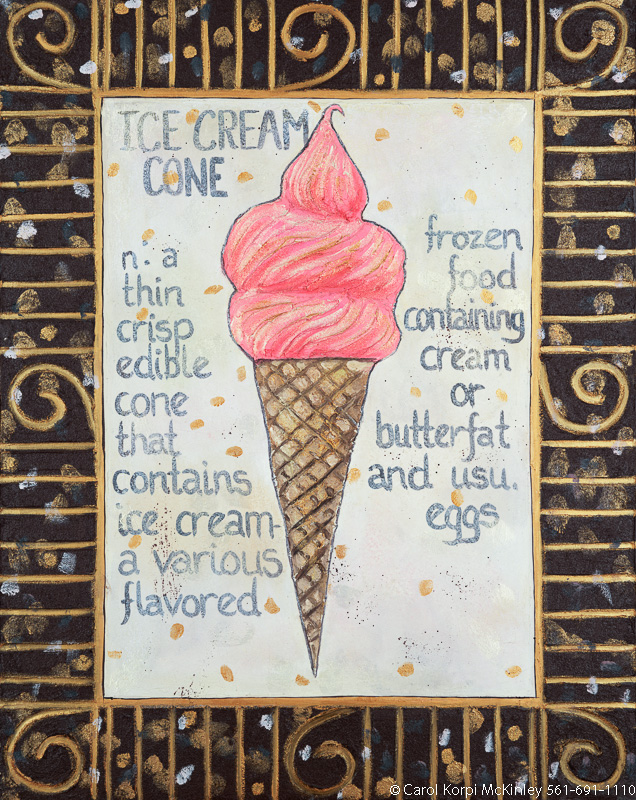 ICE CREAM
CONE
n: a
thin
crisp
edible
cone
that
contains
ice cream-
a various
flavored
frozen
food
containing
cream
or
butterfat
and usu.
eggs
© Carol Korpi McKinley 561-691-1110